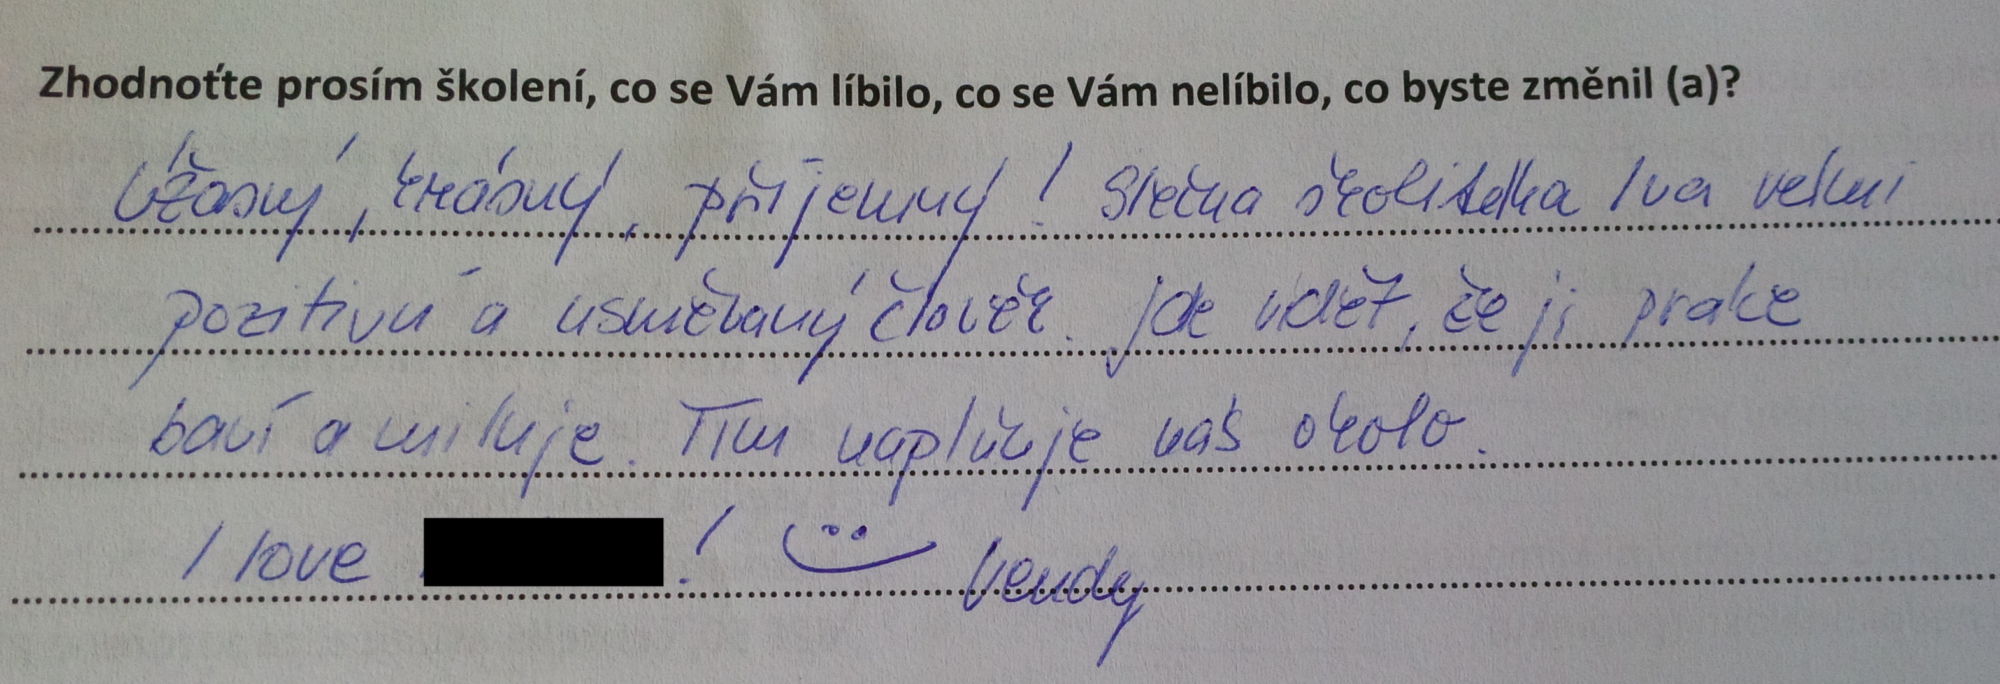 Zhodnoťte prosím školení, co se Vám líbilo, co se Vám nelíbilo, co byste změnil (a)?
Úžasný, krásný, příjemný! Slečna školitelka Iva velmi
pozitivní a usměvaný člověk. Jde vidět, že ji práce
baví a miluje. Tím naplňuje naš okolo.
I love ! Vendy